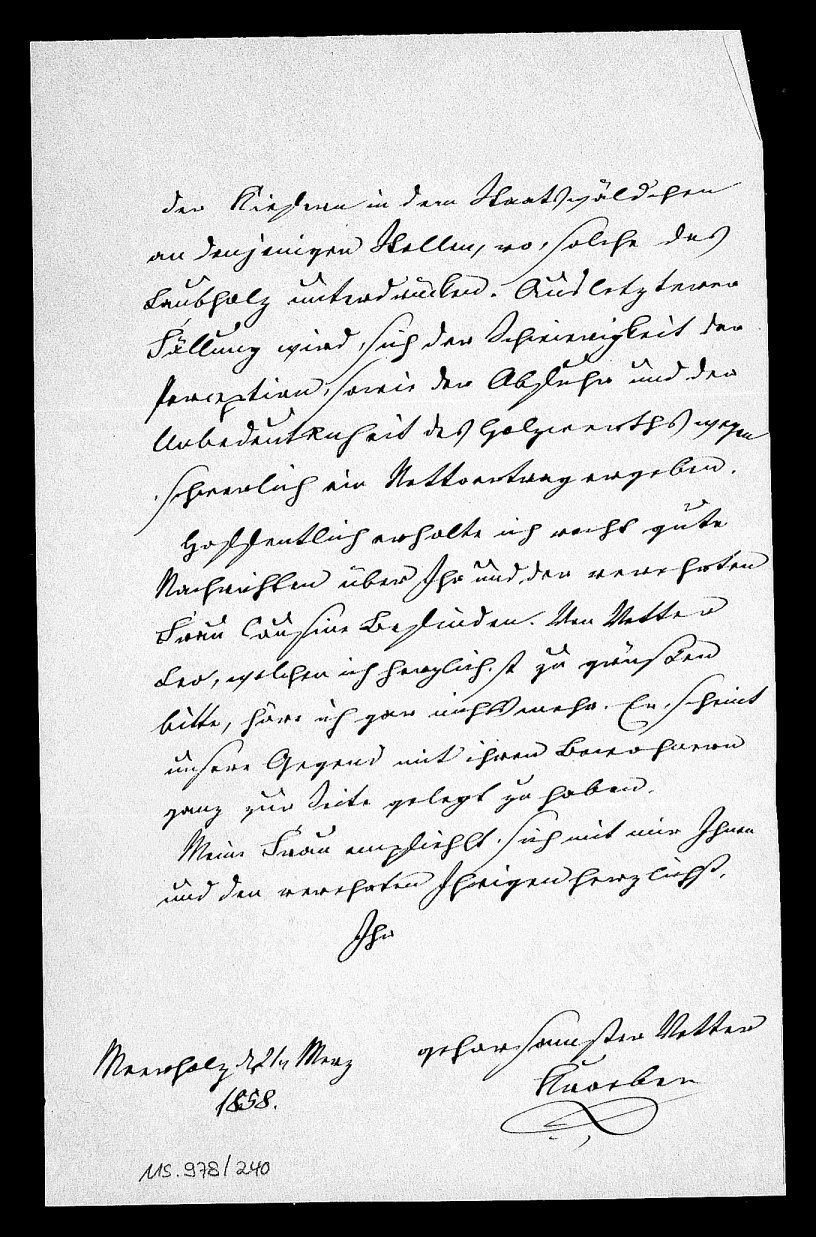 der Kiefern in dem Staatswäldchen
an denjenigen Stellen, wo solche das
Laubholz unterdrücken. Aus letzterer
Fällung wird sich der Schwierigkeit der
Perception, sowie der Abfuhr und der
Unbedeutenheit des Holzwerths wegen
schwerlich ein Nettoertrag ergeben.
Hoffentlich erhalte ich recht gute
Nachrichten über Ihr und der verehrten
Frau Cousine Befinden. Von Vetter
Leo, welchen ich herzlichst zu grüßen
bitte, höre ich gar nichts mehr. Er scheint
unsere Gegend mit ihren Bewohnern
ganz zur Seite gelegt zu haben.
Meine Frau empfiehlt sich mit mir Ihnen
und den verehrten Ihrigen herzlichst.
Ihr
gehorsamster Vetter
Meerholz März
1858.
MS. 978/240